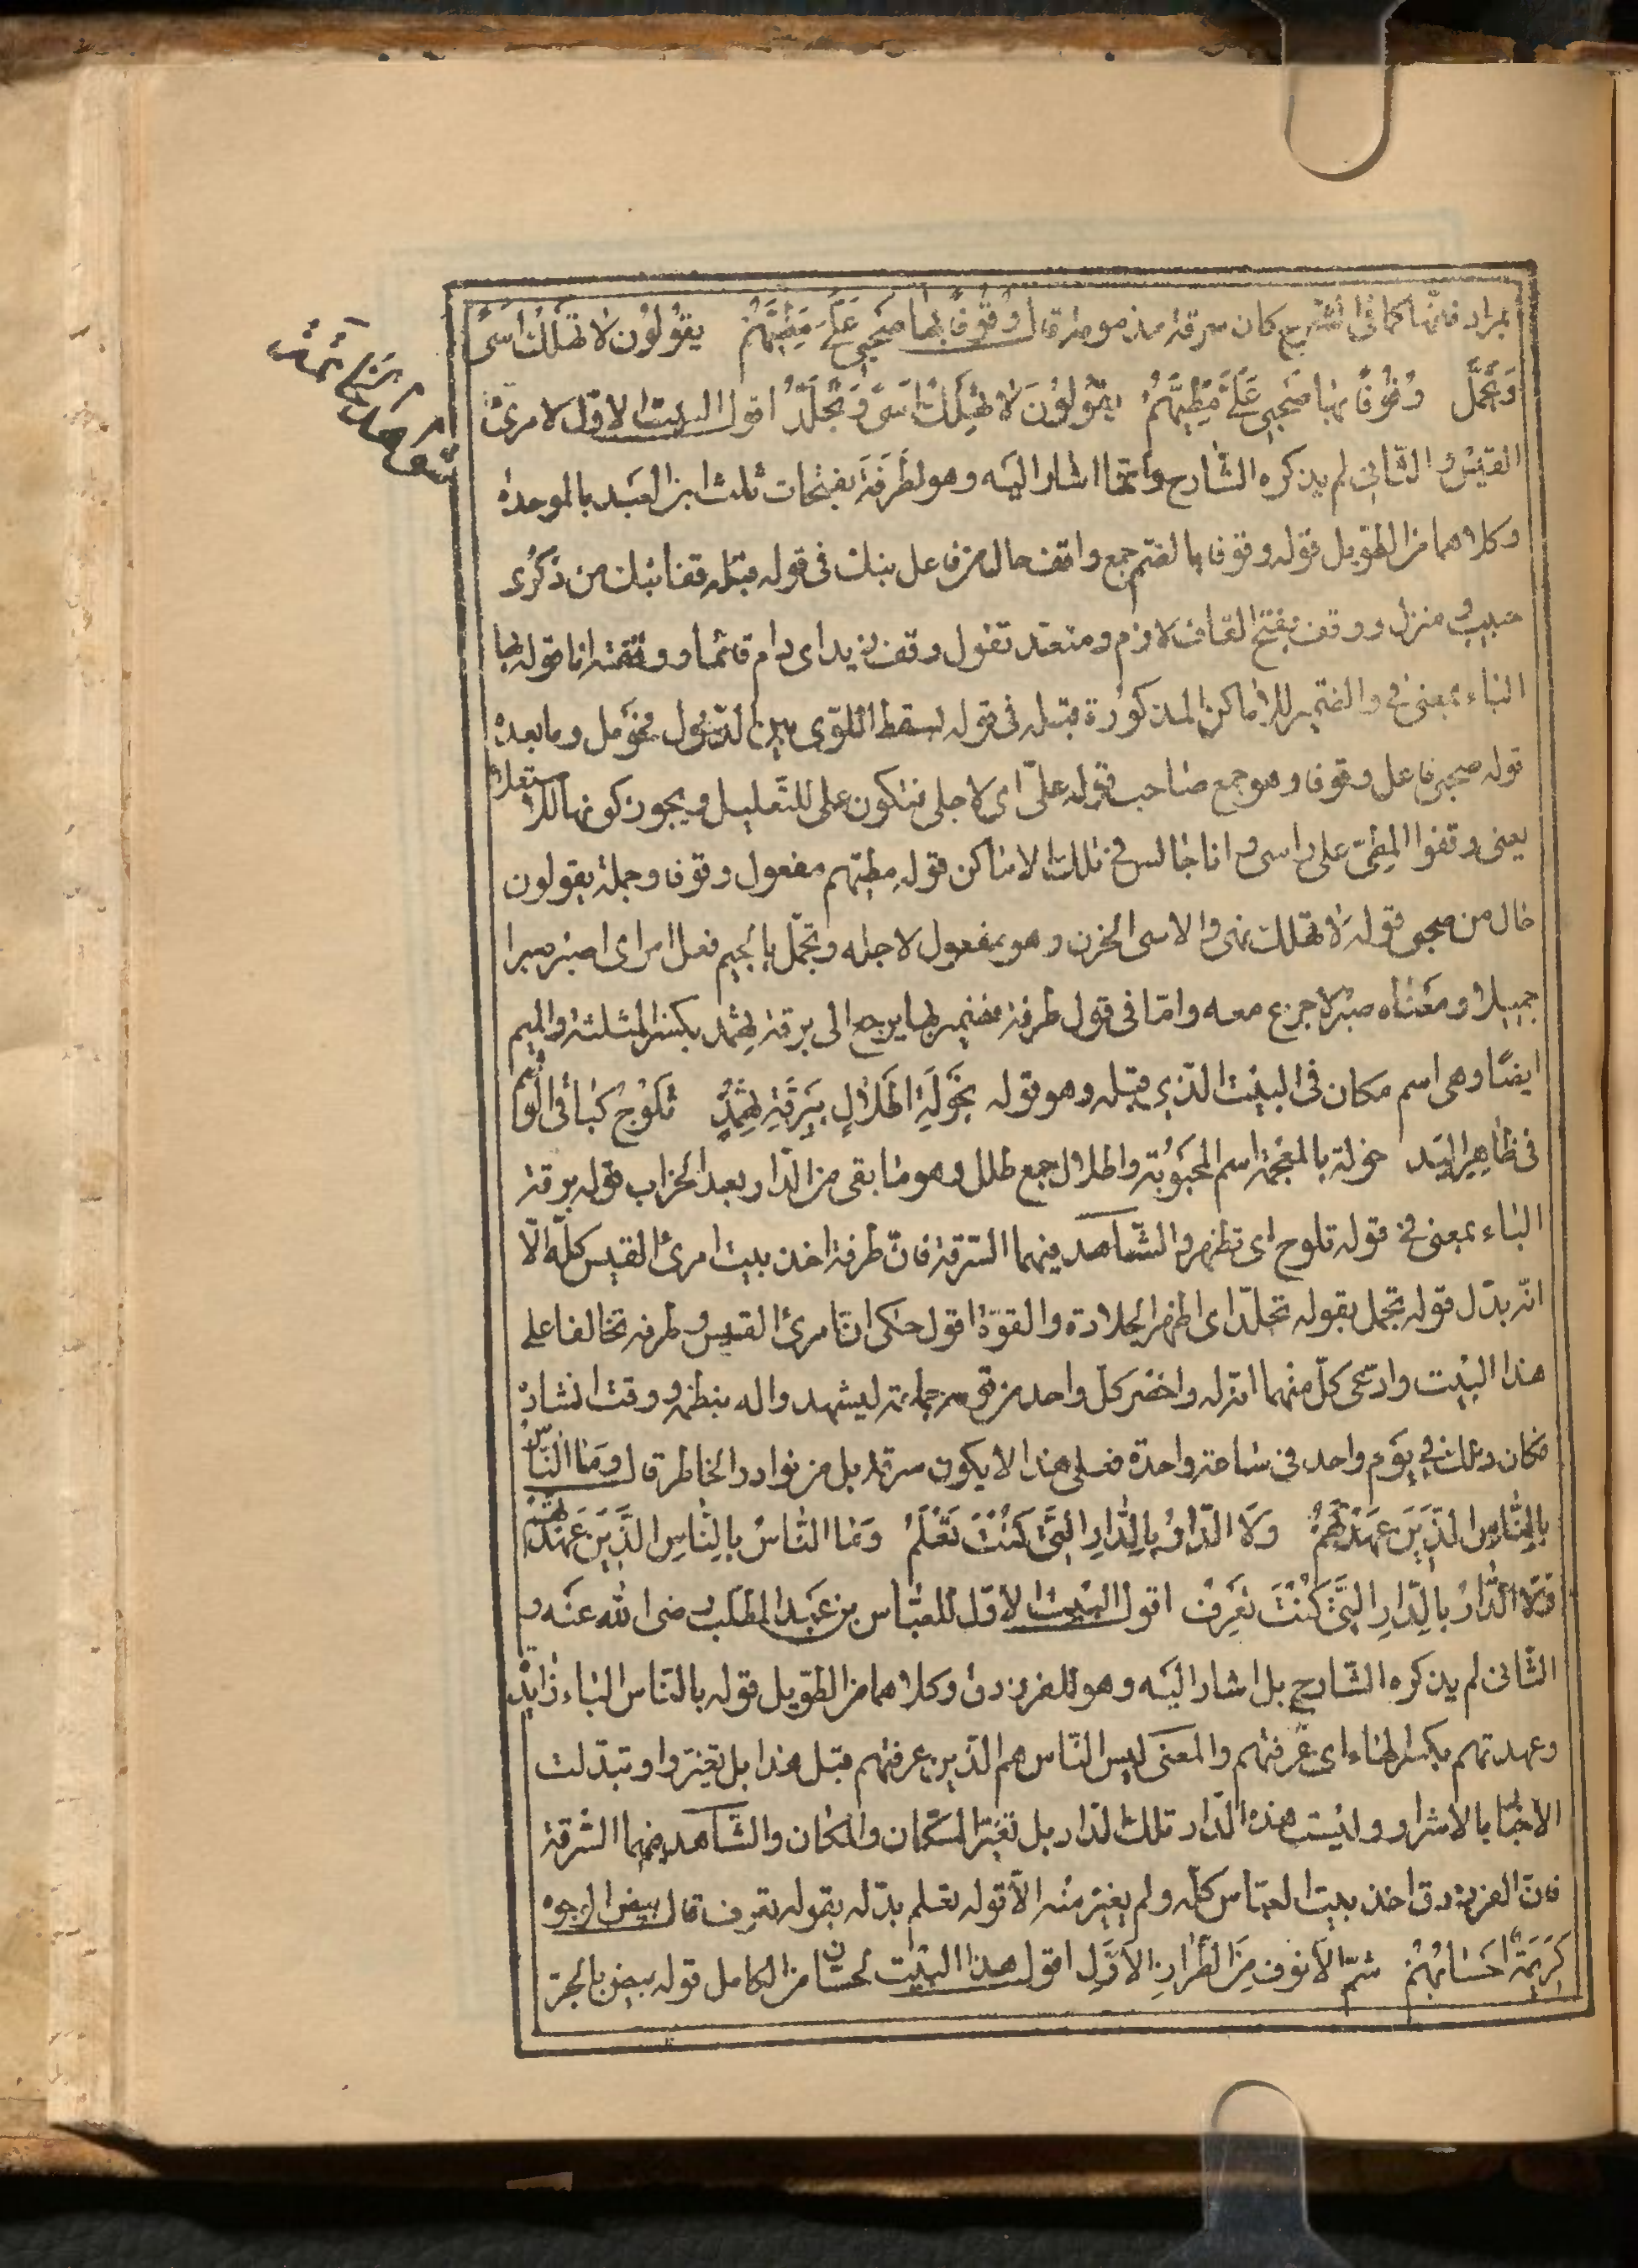 بمراد فنّها كما فى الشرح كان سرقة مذمومة قال وُقُوفًا بِها صَحْبِى عَلَىَّ مَطِيَّهُمْ يَقُولُونَ لا تَهْلِكْ اَسىً
وَتَجَمَّلِ وُقُوفًا بِهَا صَحْبِى عَلَىَّ مَطِيَّهُمْ يَقُولُونَ لا تَهْلِكْ اَسىً وَتَجَلَّدِ اقول البيت الاول لامرئ
القيس والثانى لم يذكره الشارح وانما اشار اليه وهو لطَرَفَة بفتحات ثلث ابن العبد بالموحدة
وكلاهما من الطويل قوله وقوفا بالضم جمع واقف حال من فاعل نبك فى قوله قبله قفا نبك من ذكرى
حبيب ومنزل ووقف بفتح القاف لازم ومتعد تقول وقف زيد اى دام قائما ووقفته انا قوله بها
الباء بمعنى فى والضمير للاماكن المذكورة قبله فى قوله بسقط اللوى بين الدخول فحومل وما بعده
قوله صحبى فاعل وقوفا وهو جمع صاحب قوله علىّ اى لاجلى فتكون على للتعليل ويجوز كونها للاستعلاء
يعنى وقفوا المطىّ على راسى وانا جالس فى تلك الاماكن قوله مطيّهم مفعول وقوفا وجملة يقولون
حال من صحبى قوله لا تهلك نهى والاسى الحزن وهو مفعول لاجله وتجمّل بالجيم فعل امر اى اصبر صبرا
جميلا ومعناه صبر لا جزع معه وامّا فى قول طرفة فضمير بها يرجع الى برقة ثهمد بكسر المثلثة والميم
ايضًا وهى اسم مكان فى البيت الذى قبله وهو قوله لِخَوْلَةَ اَطْلالٌ بِبُرْقَةِ ثَهْمَدِ تَلُوحُ كَبَاقِى الْوَشْمِ
فى ظَاهِرِ الْيَد خولة بالمعجمة اسم المحبوبة واطلال جمع طلل وهو ما بقى من الدار بعد الخراب قوله ببرقة
الباء بمعنى فى قوله تلوح اى تظهر والشاهد فيهما السرقة فانّ طرفة اخذ بيت امرئ القيس كلّه الّا
انّه بدّل قوله تجمل بقوله تجلّد اى اظهر الجلادة والقوة اقول حكى انّ امرئ القيس وطرفه تخالفا على
هذا البيت وادّعى كلّ منهما انّه له واحضر كل واحد من قومه جماعة ليشهدوا له بنظمه ووقت انشاده
فكان ذلك فى يوم واحد فى ساعة واحدة فعلى هذا لا يكون سرقة بل من نوادر الخاطر قال وَمَا النَّاسُ
بِالنَّاسِ الَّذِينَ عَهِدْتَهُمْ وَلَا الدَّارُ بِالدَّارِ الَّتِى كُنْتَ تَعْلَمُ وَمَا النَّاسُ بِالنَّاسِ الَّذِينَ عَهِدْتَهُمْ
وَلَا الدَّارُ بِالدَّارِ الَّتِى كُنْتَ تَعْرِفُ اقول البيت الاول للعبّاس بن عبد المطلب رضى الله عنه و
الثانى لم يذكره الشارح بل اشار اليه وهو للفرزدق وكلاهما من الطويل قوله بالناس الباء زايدة
وعهدتهم بكسر الهاء اى عرفتهم والمعنى ليس الناس هم الذين عرفتهم قبل هذا بل تغيّروا وتبدّلت
الاخيار بالاشرار وليست هذه الدار تلك الدار بل تغيّر السكّان والمكان والشاهد فيهما السّرقة
فانّ الفرزدق اخذ بيت العبّاس كلّه ولم يغير منه الّا قوله تعلم بدّله بقوله تعرف قال بيض الوجوه
كَرِيمَةٌ اَحْسَابُهُمْ شُمُّ الْاَنُوفِ مِنَ الطِّرَازِ الْاَوَّلِ اقول هذا البيت لحسّان من الكامل قوله بيض بالجرّ